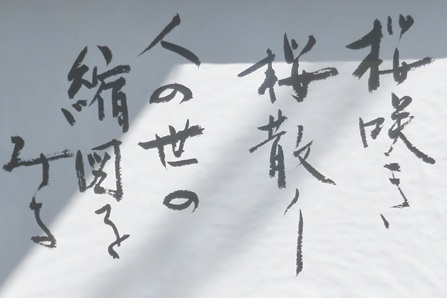 桜咲き、
桜散り
人の世の
縮図を